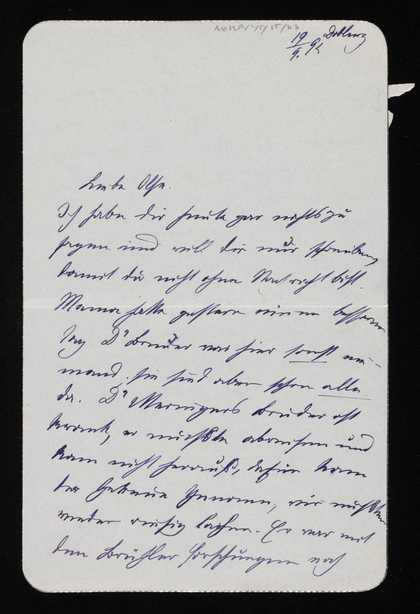 19/9. 92 Döbling
Liebe Olga.
Ich habe dir heute gar nichts zu
sagen und will dir nur schreiben,
damit du nicht ohne Nachricht bist.
Mama hatte gestern einen besseren
Tag Dr Breuer war hier sonst nie-
mand. sie sind aber schon alle
da. Dr bruder ist
krank, er mußte abreisen und
kam nicht herauß, dafür kam
der wir mußten
wieder riesig lachen. Er war mit
den noch